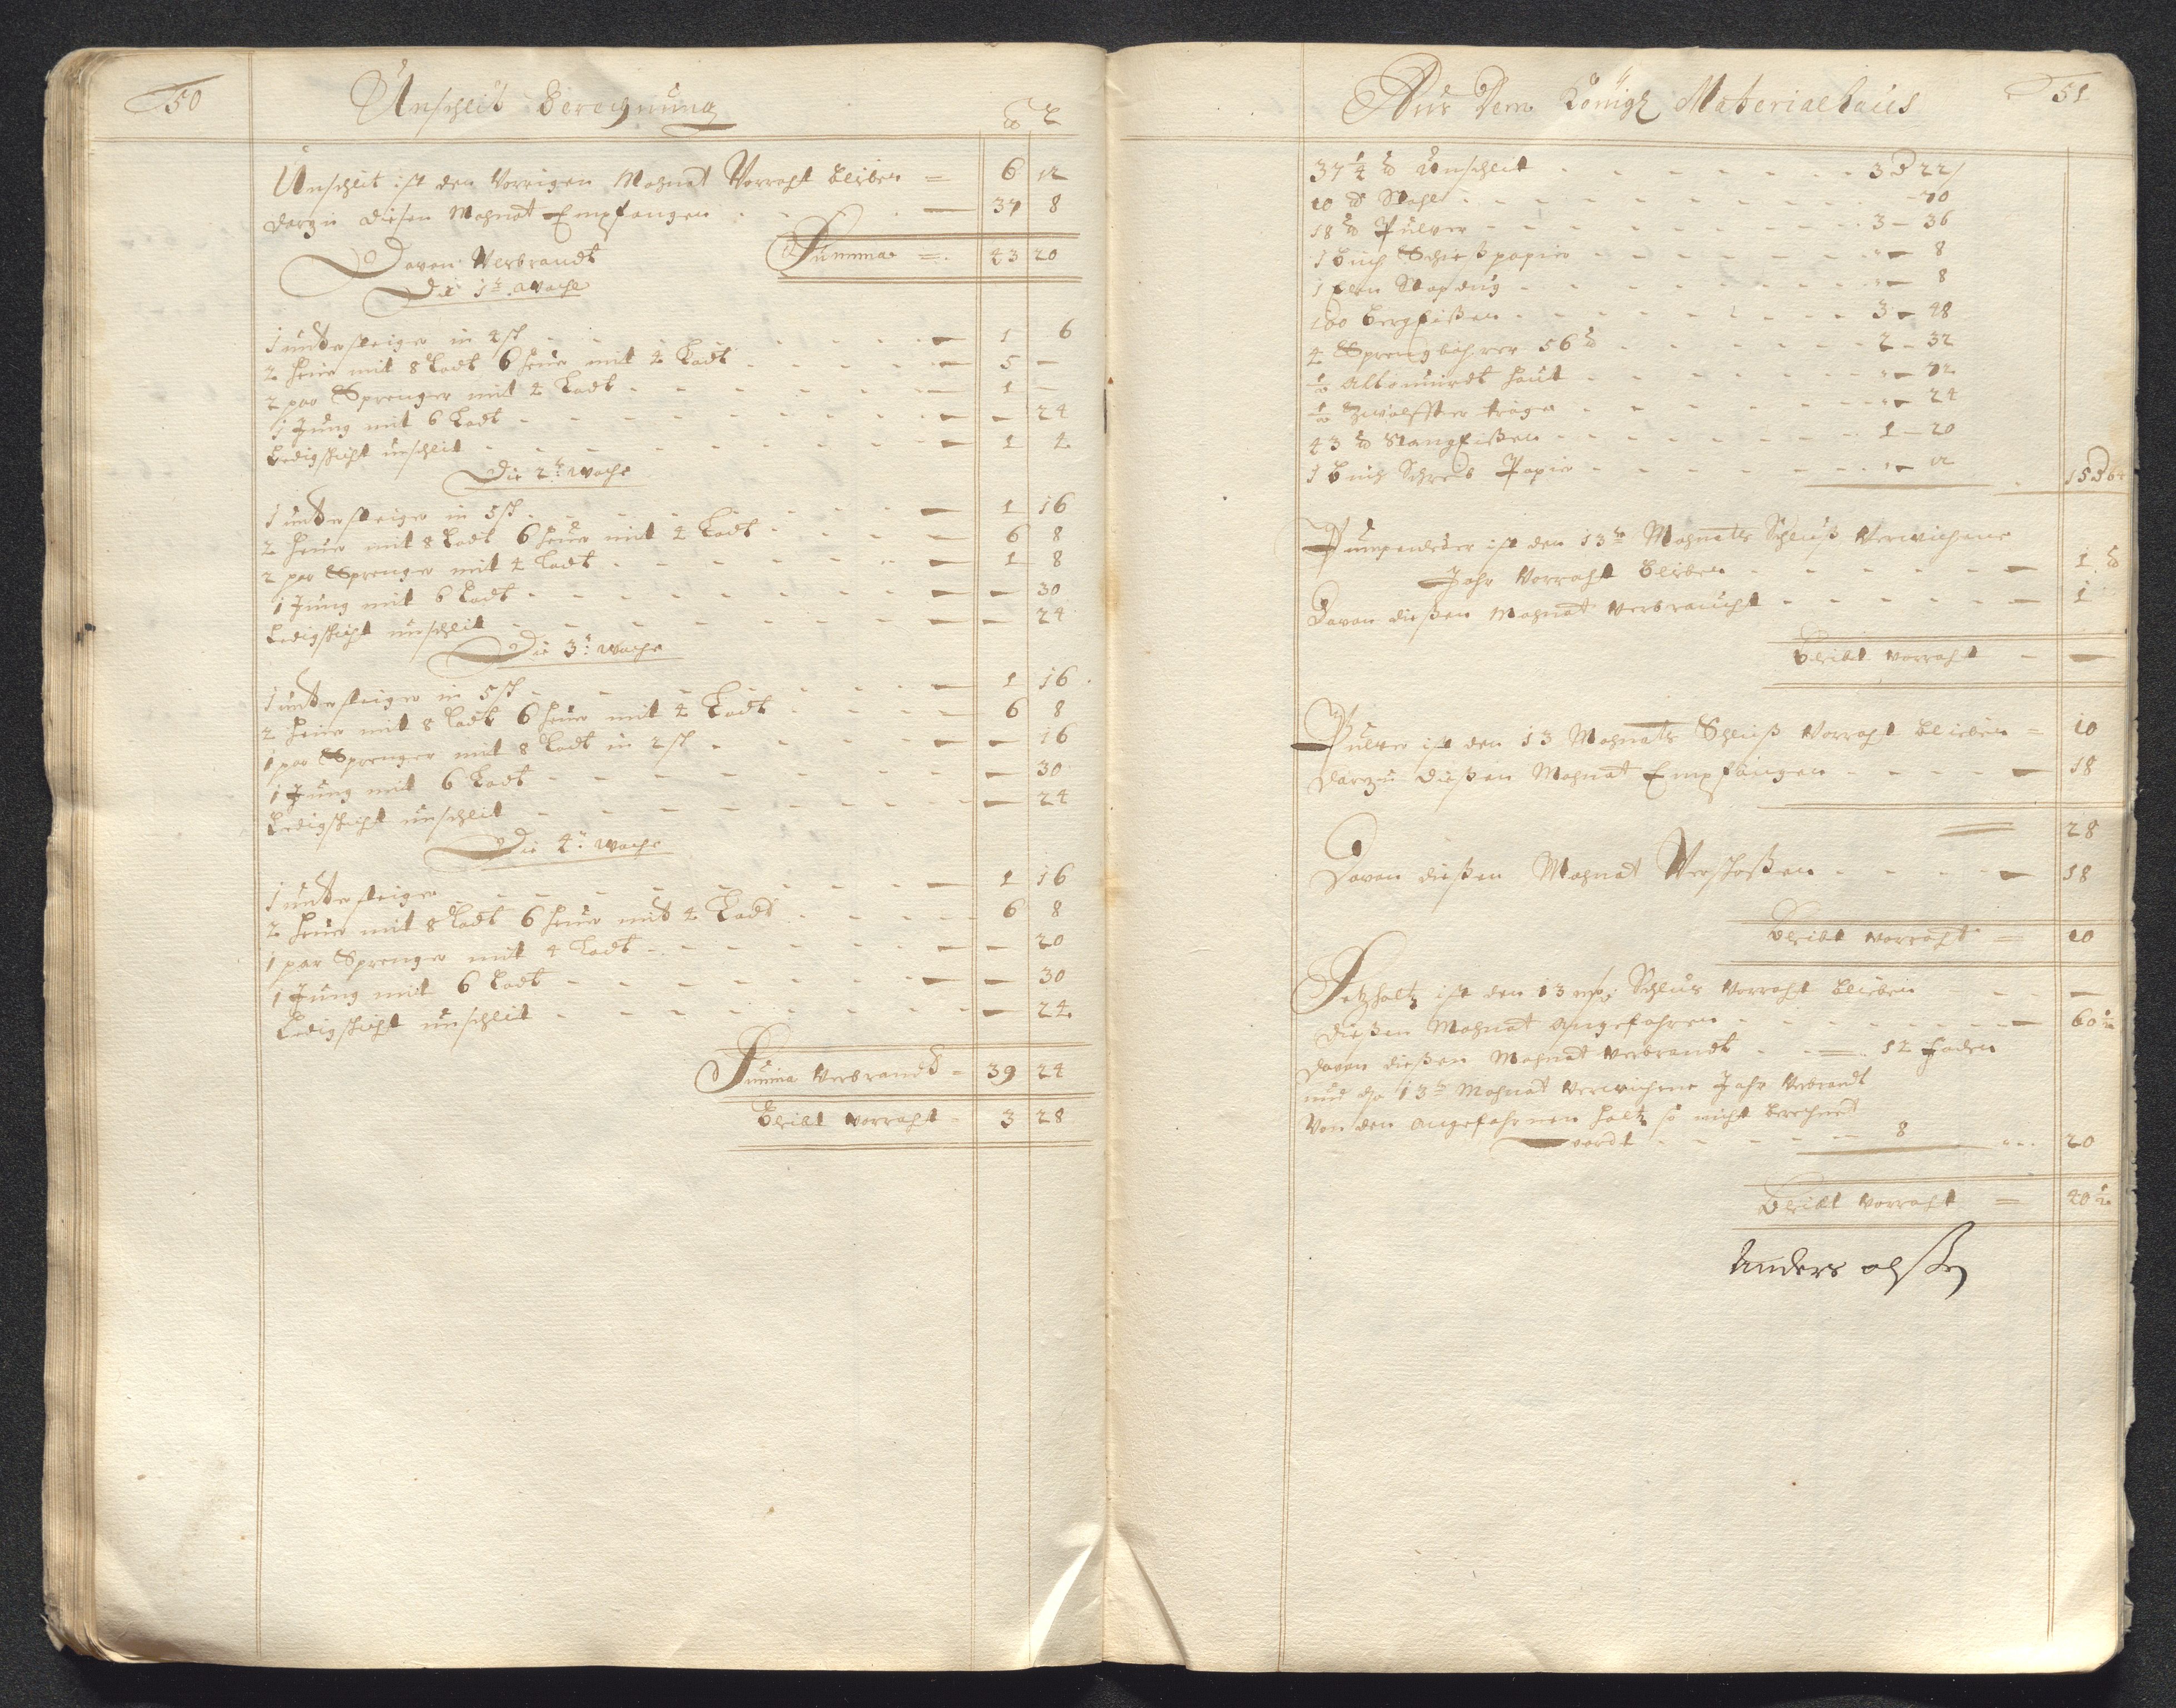 50
Unschlit Berechnung
℔ L
Unschlit ist den Vorrigen Mohnat Vorraht bliben = 6 12
darzu diesen Mohnat Empfangen - - 37 8
Summa = 43 20
Davon Verbrandt
Die 1te Woche
1 untersteiger in 4 sch - - 1 6
2 heuer mit 8 Lodt 6 heuer mit 4 Lodt - - 5 —
2 par Sprenger mit 4 Lodt - - 1 —
1 Jung mit 6 Lodt - - — 24
Ledigschicht unschlit - - 1 4
Die 2te Woche
1 untersteiger in 5 sch - - 1 16
2 heuer mit 8 Lodt 6 heuer mit 4 Lodt - - 6 8
2 par Sprenger mit 4 Lodt - - 1 8
1 Jung mit 6 Lodt - - — 30
Ledigschicht unschlit - - — 24
Die 3te woche
1 untersteiger in 5 sch - - 1 16
2 heuer mit 8 Lodt 6 heuer mit 4 Lodt - - 6 8
1 par Sprenger mit 8 Lodt in 2 sch - - — 16
1 Jung mit 6 Lodt - - — 30
Ledigschicht unschlit - - — 24
Die 4te woche
1 untersteiger - - 1 16
2 heuer mit 8 Lodt 6 heuer mit 4 Lodt - - 6 8
1 par Sprenger mit 4 Lodt - - — 20
1 Jung mit 6 Lodt - - — 30
Ledigschicht unschlit - - — 24
Summa Verbrandt = 39 24
Bleibt vorraht - 3 28
Aus Dem Königl Materialhaus 51
37 1/4 ℔ Unschlit - - 3 D 22
10 ℔ Stahl - - 70
18 ℔ Pulver - - 3 - 36
1 Buch Schießpapier - - 8
1 - - 8
100 Bergeißen - - 3 - 48
4 Sprengbohrer 56 ℔ - - 2 - 32
1/2 haut - - 72
1/2 zwölffter tröge - - 24
43 ℔ Stangeißen - - 1 - 20
1 Buch Schreib Papier - - 12 15 D
Pumpenleder ist den 13te Mohnatts Schluß Verwichene
Jahr Vorraht bliben - - 1 ℔
Davon dießen Mohnat verbraucht - - 1
Bleibt vorraht - —
Pulver ist den 13 Mohnatts Schluß Vorraht blieben = 10
darzu dießen Mohnat Empfangen - - 18
28
Davon dießen Mohnat Verschoßen - - 18
Bleibt vorraht = 10
Setzholtz ist den 13 Schlus Vorraht blieben - - —
dießen Mohnat angefahren - - 60 1/2
davon dießen Mohnat verbrandt - - 12 Faden
und 13te Mohnat verwichene Jahr Verbrandt
Von den angefahrnen holtz so nicht berechnet
wordt - - 8 - - 20
Bleibt vorraht = 40 1/2
Anders olßen